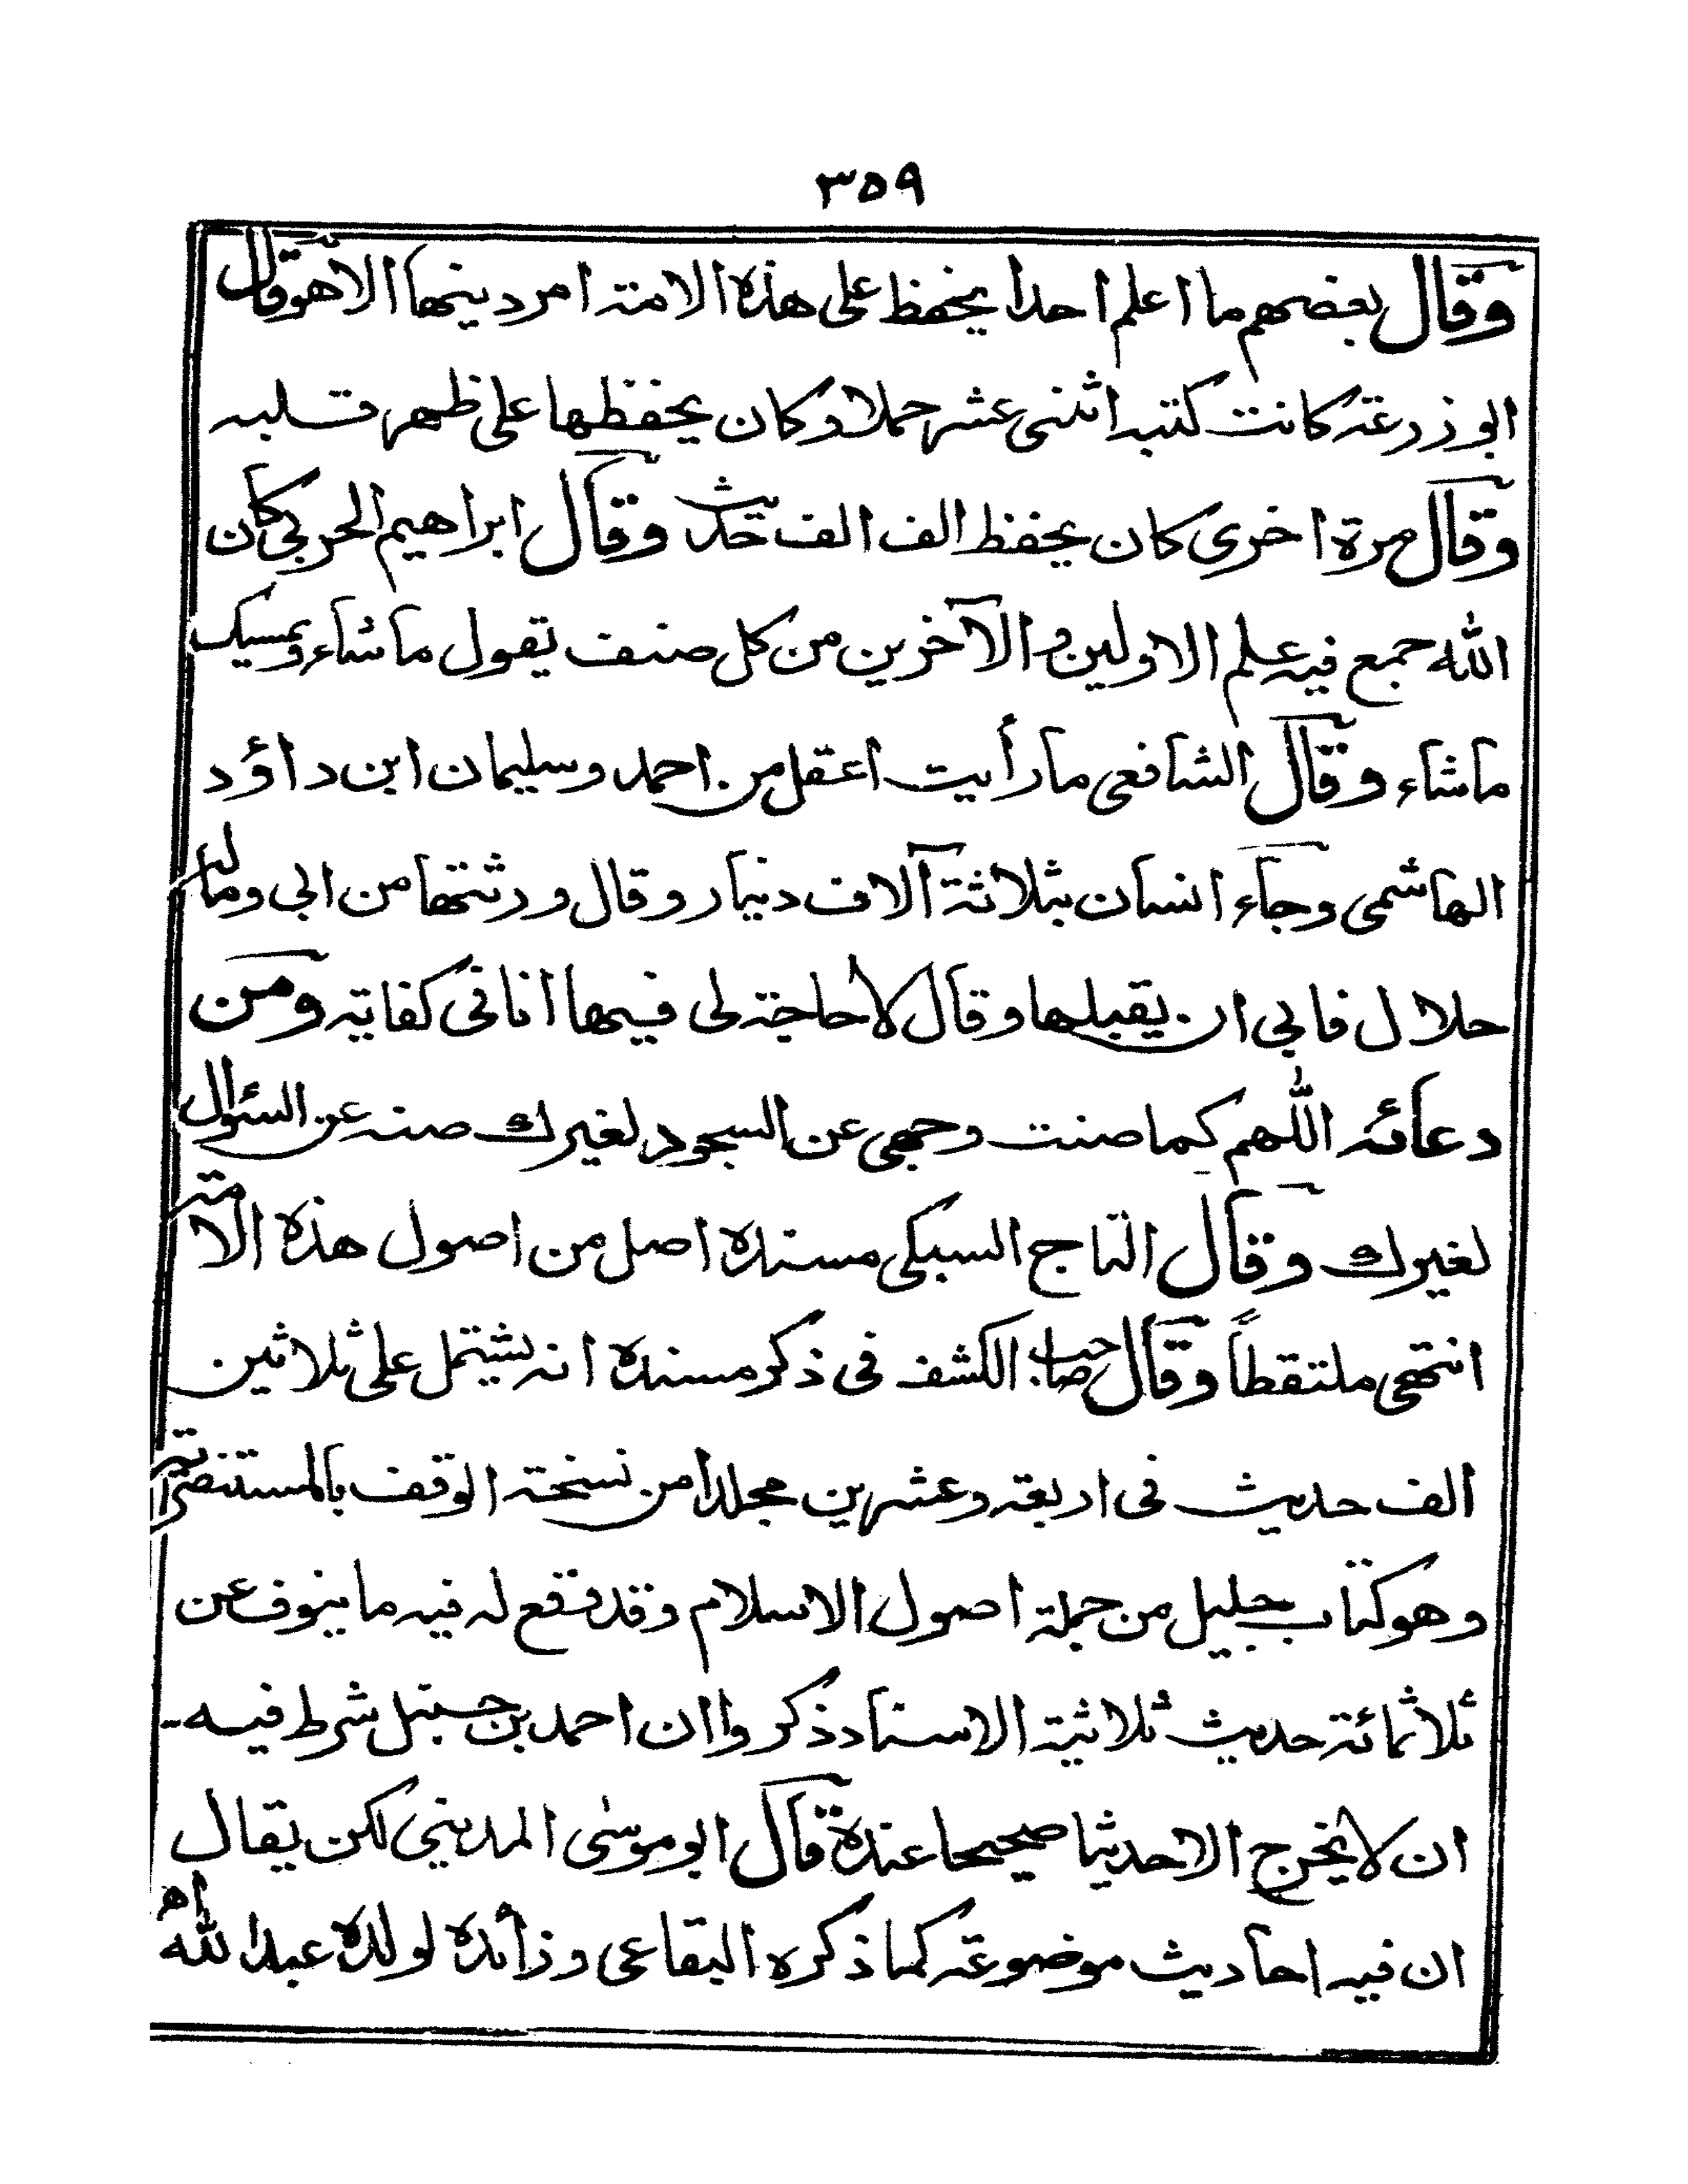 ٣٥٩
وقال بعضهم ما اعلم احدا يحفظ على هذه الامة امر دينها الا هو وقال
ابو زرعة كانت كتبه اثنى عشر حملا وكان يحفظها على ظهر قلبه
وقال مرة اخرى كان يحفظ الف الف حديث وقال ابراهيم الحربي كان
الله جمع فيه علم الاولين والآخرين من كل صنف يقول ما شاء ويمسك
ما شاء وقال الشافعى ما رأيت اعقل من احمد وسليمان ابن داؤد
الهاشمى وجاء انسان بثلاثة آلاف دينار وقال ورثتها من ابى وماله
حلال فابى ان يقبلها وقال لا حاجة لى فيها انا فى كفاية ومن
دعائه اللهم كما صنت وجهى عن السجود لغيرك صنه عن السئوال
لغيرك وقال التاج السبكى مسنده اصل من اصول هذه الامة
انتهى ملتقطاً وقال صاحب الكشف فى ذكر مسنده انه يشتمل على ثلاثين
الف حديث فى اربعة وعشرين مجلدا من نسخة الوقف بالمستنصرية
وهو كتاب جليل من جملة اصول الاسلام وقد وقع له فيه ما ينوف عن
ثلاثمائة حديث ثلاثية الاسناد ذكروا ان احمد بن حنبل شرط فيه-
ان لا يخرج الا حديثا صحيحا عنده قال ابو موسٰى المدينى لكن يقال
ان فيه احاديث موضوعة كما ذكره البقاعى وزائده لولده عبد الله اھ